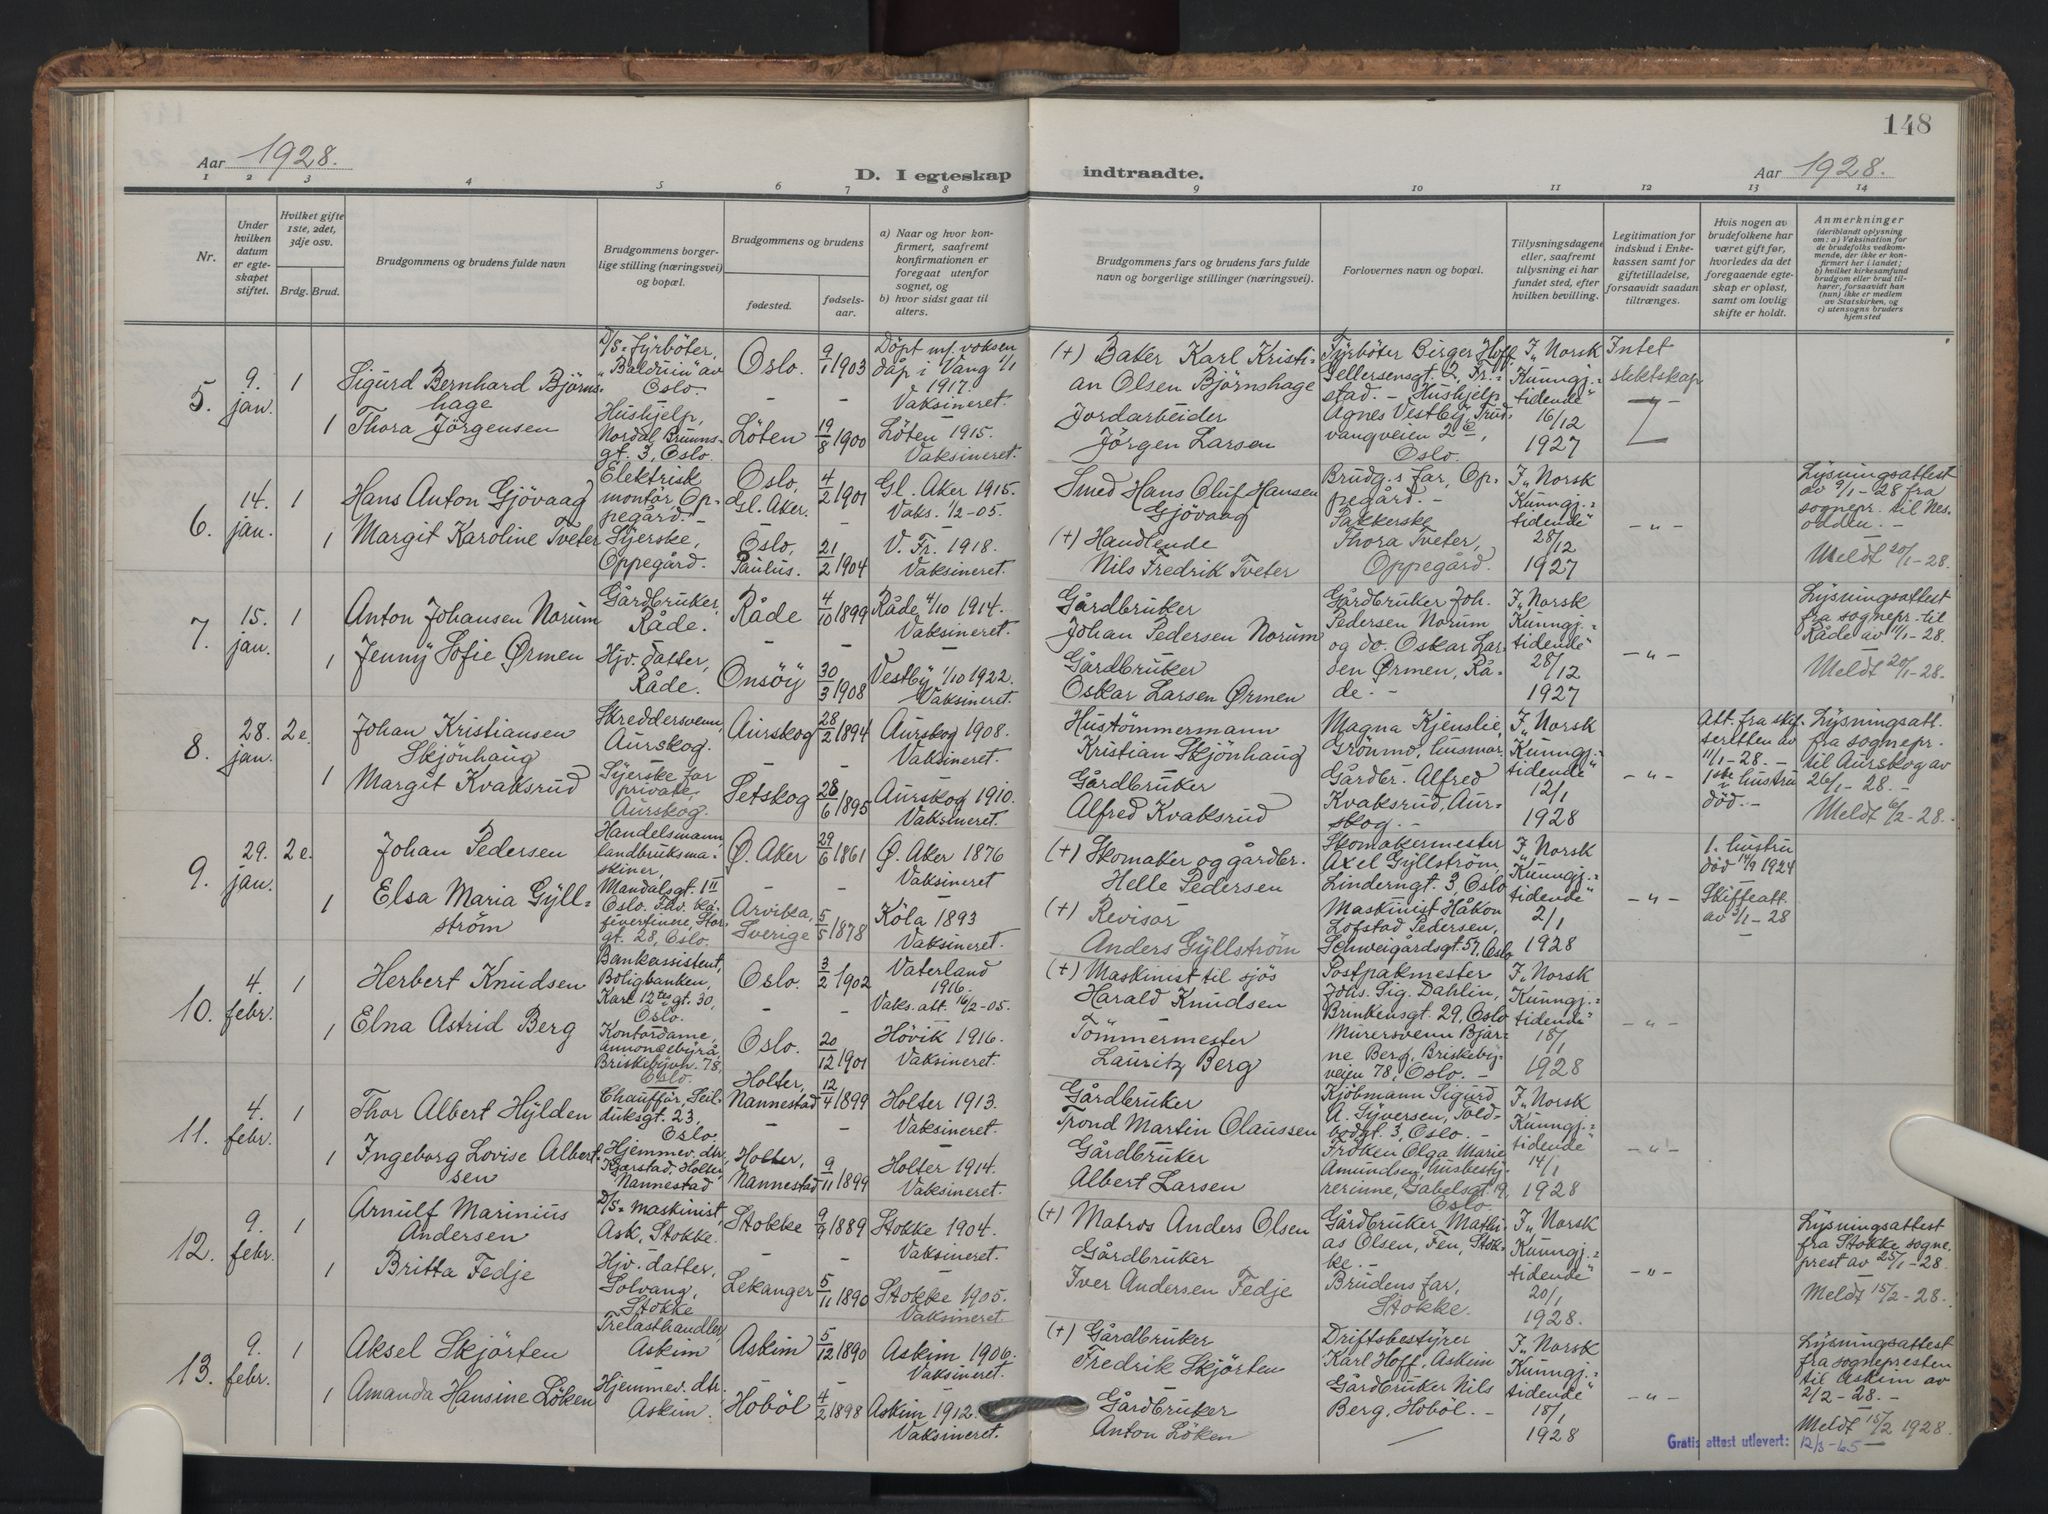 148
Aar 1928.
D. I egteskap indtraadte.
Aar 1928.
1 2 3 4 5 6 7 8 9 10 11 12 13 14
Nr.
Under hvilken datum er egteskapet stiftet.
Hvilket gifte 1ste, 2det, 3dje osv.
Brdg. Brud.
Brudgommens og brudens fulde navn
Brudgommens borgerlige stilling (næringsvei) og bopæl.
Brudgommens og brudens
fødested.
fødselsaar.
a) Naar og hvor konfirmert, saafremt konfirmationen er foregaat utenfor sognet, og
b) hvor sidst gaat til alters.
Brudgommens fars og brudens fars fulde navn og borgerlige stillinger (næringsvei).
Forlovernes navn og bopæl.
Tillysningsdagene eller, saafremt tillysning ei har fundet sted, efter hvilken bevilling.
Legitimation for indskud i Enkekassen samt for giftetilladelse, forsaavidt saadan tiltrænges.
Hvis nogen av brudefolkene har været gift før, hvorledes da det foregaaende egteskap er opløst, samt om lovlig skifte er holdt.
Anmerkninger
(deriblandt oplysning om: a) Vaksination for de brudefolks vedkommende, der ikke er konfirmert her i landet; b) hvilket kirkesamfund brudgom eller brud tilhører, forsaavidt han (hun) ikke er medlem av Statskirken, og c) utensogns bruders hjemsted
5.
9. jan.
1
Sigurd Bernhard Björnshage
D/S-fyrböter, "Baldruin" av Oslo.
Oslo.
9/1 1903
Döpt ved voksen dåp i Vang 1/1 1917.
Vaksineret.
(+) Baker Karl Kristian Olsen Björnshage
Fyrböter Birger Hoff Gellersensgt. 2, Fr.stad. - Hushjelp Agnes Vestby, Trudvangveien 2c, Oslo.
I "Norsk Kunngj.-tidende" 16/12 1927
Intet slektskap
1
Thora Jörgensen
Hushjelp, Nordal Brunnsgt. 3, Oslo.
Löten
19/8 1900
Löten 1915.
Vaksineret.
Jordarbeider
Jörgen Larsen
6.
14. jan.
1
Hans Anton Gjövaag
Elektrisk montör, Oppegård. -
Oslo, Gl. Aker.
4/2 1901
Gl. Aker 1915.
Vaks. 1/2-05.
Smed Hans Oluf Hansen Gjövaag
Brudg.s far, Oppegård. -
Pakkerske Thora Tveter, Oppegård.
I "Norsk Kunngj.-tidende" 28/12 1927
- " -
Lysningsattest av 9/1-28 fra sognepr. til Nesodden. -
Meldt 20/1-28.
1
Margit Karoline Tveter
Syerske, Oppegård.
Oslo, Paulus.
21/2 1904
V. Fr. 1918.
Vaksineret.
(+) Handlende
Nils Fredrik Tveter
7.
15. jan.
1
Anton Johansen Norum
Gårdbruker, Råde.
Råde
4/10 1899
Råde 4/10 1914.
Vaksineret.
Gårdbruker
Johan Pedersen Norum
Gårdbruker Joh. Pedersen Norum og do. Oskar Larsen Ørmen, Råde. -
I "Norsk Kunngj.-tidende" 28/12 1927
- " -
Lysningsattest fra sognepr. til Råde av 11/1-28.
Meldt 20/1-28.
1
Jenny Sofie Ørmen
Hjv. datter, Råde.
Onsöy
30/3 1908
Vestby 1/10 1922.
Vaksineret.
Gårdbruker
Oskar Larsen Ørmen
8.
28. jan.
2e.
Johan Kristiansen Skjönhaug
Skreddersvenn, Aurskog.
Aurskog
28/2 1894
Aurskog 1908.
Vaksineret.
Hustömmermann
Kristian Skjönhaug
Magna Kjenslie, Grönmo, husmor.
Gårdbr. Alfred Kvaksrud, Aurskog. -
I "Norsk Kunngj.-tidende" 12/1 1928
- " -
Att. fra skifteretten av 11/1-28. - 1ste hustru död. -
Lysningsatt. fra sognepr. til Aurskog av 26/1-28. -
Meldt 6/2-28. -
1
Margit Kvaksrud
Syerske for private Aurskog.
Setskog
28/6 1895
Aurskog 1910.
Vaksineret.
Gårdbruker
Alfred Kvaksrud
9.
29. jan.
2e.
Johan Pedersen
Handelsmann, landbruksmaskiner, Mandalsgt. 1 II Oslo.
Ø. Aker
29/6 1861
Ø. Aker 1876
Vaksineret
(+) Skomaker og gårdbr.
Helle Pedersen
Skomakermester Axel Gyllström, Linderngt. 3, Oslo
Maskinist Håkon Lofstad Pedersen, Schweigårdsgt. 57, Oslo
I "Norsk Kunngj.-tidende" 2/1 1928
- " -
1. hustru död 14/9 1924
Skifteatt. av 3/1-28
1
Elsa Maria Gyllström
Fhv. kafévertinne, Storgt. 28, Oslo.
Arvika, Sverige
5/5 1878
Köla 1893
Vaksineret.
(+) Revisor
Anders Gyllström
10.
4. febr.
1
Herbert Knudsen
Bankassistent, Boligbanken, Karl 12tes gt. 30, Oslo.
Oslo.
3/2 1902
Vaterland 1916.
Vaks. att. 16/2-05.
(+) Maskinist til sjös
Harald Knudsen
Postpakmester Johs. Sig. Dahlin, Brinkensgt. 29, Oslo
Murersvenn Bjarne Berg, Briskebyveien 78, Oslo. -
I "Norsk Kunngj.-tidende" 18/1 1928
- " -
1
Elna Astrid Berg
Kontordame, annoncebyrå, Briskebyvn. 78, Oslo.
Oslo.
20/12 1901
Hövik 1916.
Vaksineret.
Tömmermester
Lauritz Berg
11.
4. febr.
1
Thor Albert Hylden
Chaufför, Seilduksgt. 23, Oslo.
Holter, Nannestad
12/4 1899
Holter 1913.
Vaksineret.
Gårdbruker
Trond Martin Olaussen
Kjöbmann Sigurd A. Syversen, Toldbodgt. 3, Oslo. -
Fröken Olga Marie Amundsen, husbestyrerinne, Gabelsgt. 19, Oslo.
I "Norsk Kunngj.-tidende" 14/1 1928
- " -
1
Ingeborg Lovise Albertsen
Hjemmev. dtr, Kjærstad, Holter, Nannestad
Holter, Nannestad
9/11 1899
Holter 1914.
Vaksineret.
Gårdbruker
Albert Larsen
12.
9. febr.
1
Arnulf Marinius Andersen
D/S-maskinist, Ask, Stokke.
Stokke
9/9 1889
Stokke 1904.
Vaksineret.
(+) Matros Anders Olsen
Gårdbruker Mathias Olsen, Fen, Stokke. -
Brudens far, Stokke.
I "Norsk Kunngj.-tidende" 20/1 1928.
- " -
Lysningsattest fra Stokke sogneprest av 25/1-28.
Meldt 15/2-28.
1
Britta Fedje
Hjv. datter, Solvang, Stokke
Lekanger
5/11 1890
Stokke 1905.
Vaksineret.
Gårdbruker
Iver Andersen Fedje
13.
9. febr.
1
Aksel Skjörten
Trelasthandler, Askim
Askim
5/12 1890
Askim 1906.
Vaksineret.
(+) Gårdbruker
Fredrik Skjörten
Driftsbestyrer Karl Hoff, Askim
Gårdbruker Nils Berg, Hoböl. -
I "Norsk Kunngj.-tidende" 18/1 1928
- " -
Lysningsattest fra sognepresten til Askim av 2/2-28. -
Meldt 15/2 1928.
1
Amanda Hansine Löken
Hjemmev. dtr. Askim.
Hoböl
4/2 1898
Askim 1912.
Vaksineret.
Gårdbruker
Anton Löken
Gratis attest utlevert: 12/3-65